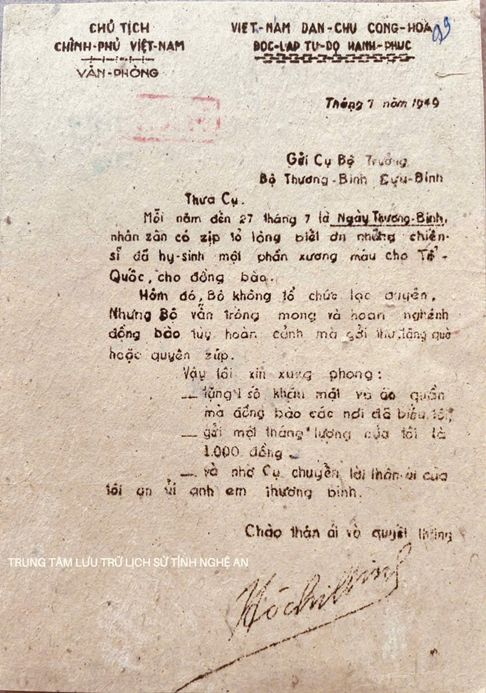 CHỦ TỊCH
CHÍNH-PHỦ VIỆT-NAM
VĂN-PHÒNG
VIỆT-NAM DÂN-CHỦ CỘNG-HÒA
ĐỘC-LẬP TỰ-DO HẠNH-PHÚC
99
Tháng 7 năm 1949
Gửi Cụ Bộ Trưởng
Bộ Thương-Binh Cựu-Binh
Thưa Cụ.
Mỗi năm đến 27 tháng 7 là Ngày Thương-Binh,
nhân zân có zịp tỏ lòng biết ơn những chiến-
sĩ đã hy-sinh một phần xương máu cho Tổ-
Quốc, cho đồng bào.
Hôm đó, Bộ không tổ chức lạc quyên.
Nhưng Bộ vẫn trông mong và hoan nghênh
đồng bào tùy hoàn cảnh mà gửi thư, tặng quà
hoặc quyên zúp.
Vậy tôi xin xung phong:
— tặng 1 số khăn mặt và áo quần
mà đồng bào các nơi đã biếu tôi,
— gửi một tháng lương của tôi là
1.000 đồng
— và nhờ Cụ chuyển lời thân ái của
tôi an ủi anh em thương binh.
Chào thân ái và quyết thắng
TRUNG TÂM LƯU TRỮ LỊCH SỬ TỈNH NGHỆ AN
Hồ Chí Minh